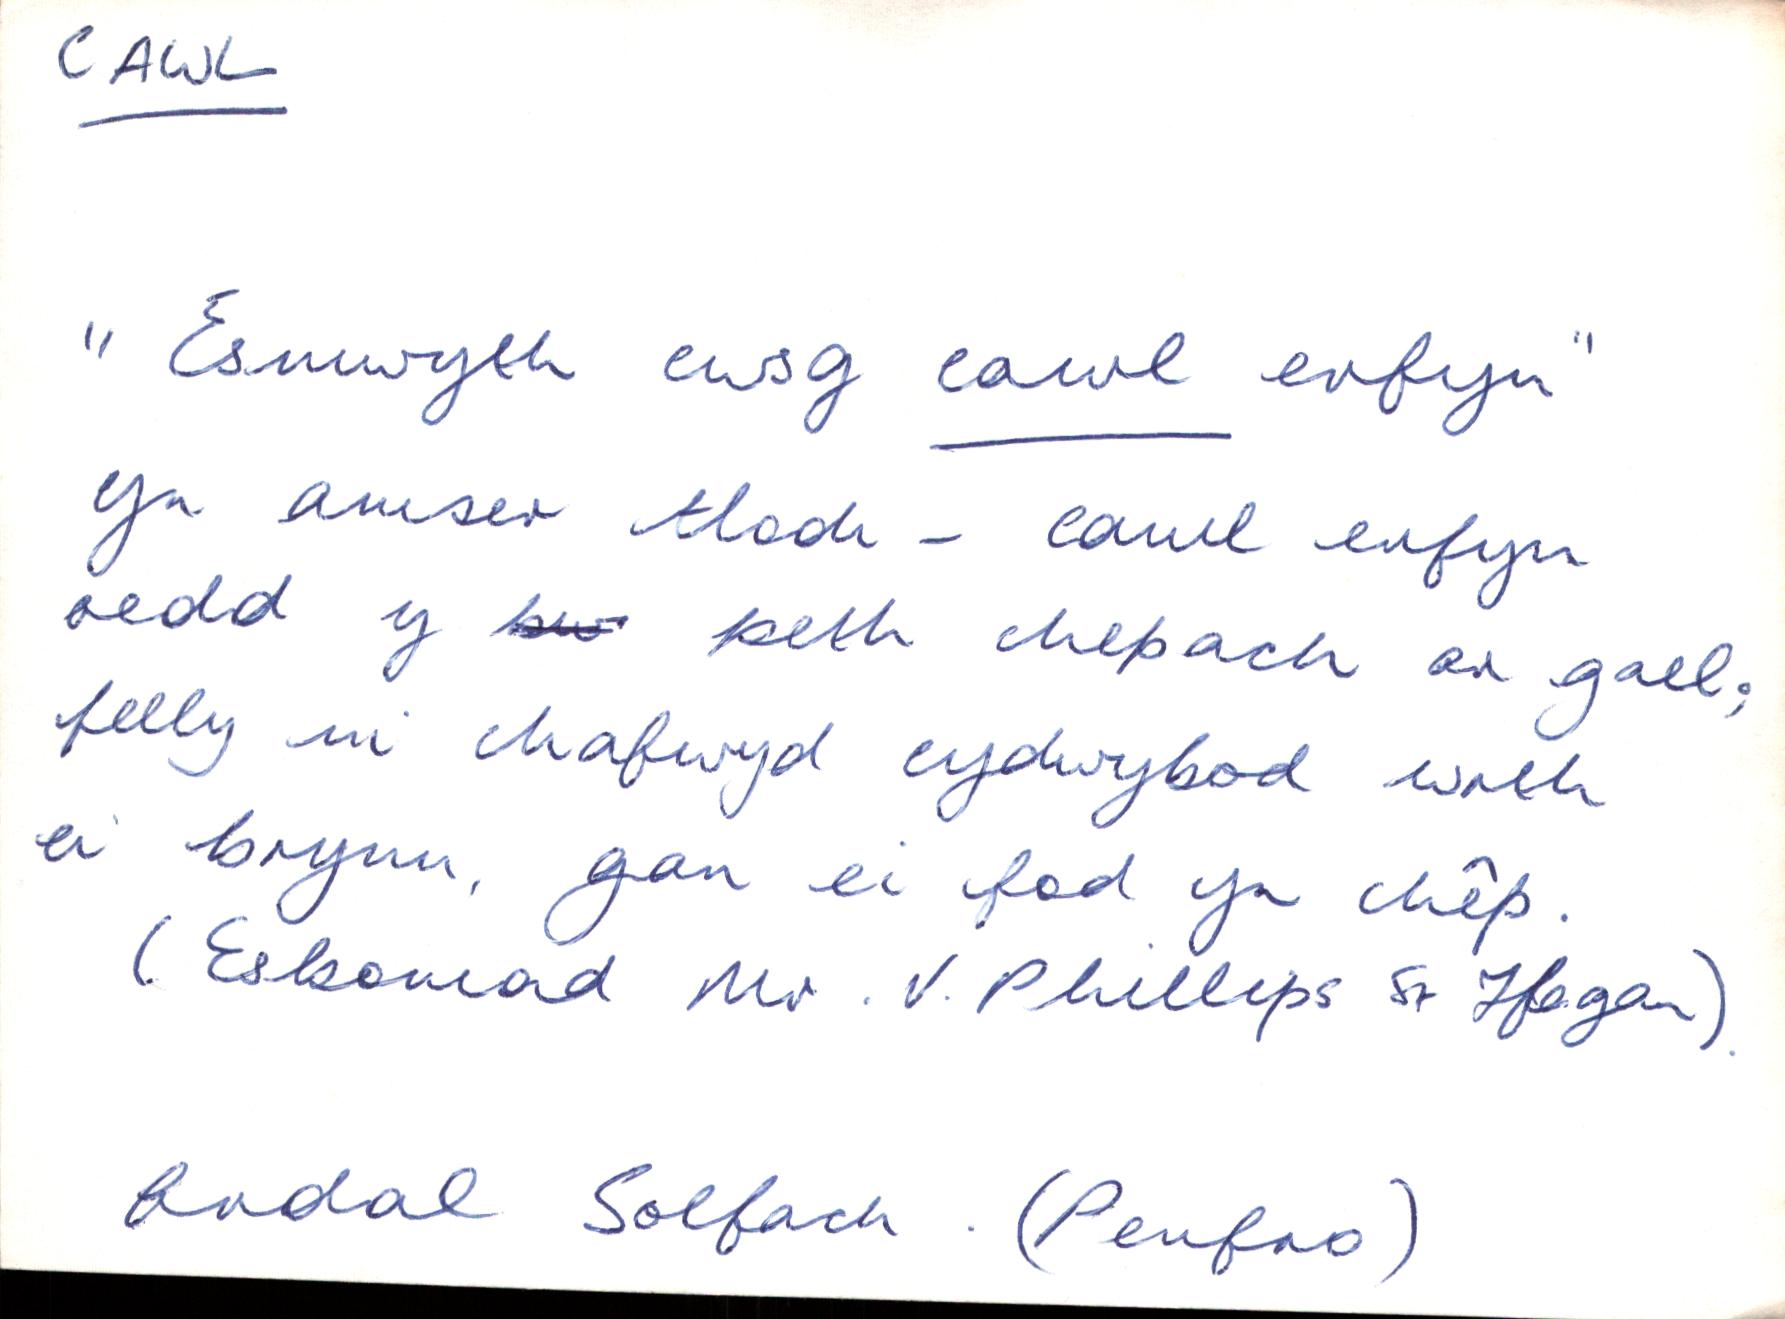 CAWL
"Esmwyth cwsg cawl erfyn"
yn amser tlodi - cawl erfyn
oedd y peth chepach ar gael;
felly ni chafwyd cydwybod wrth
ei brynu, gan ei fod yn chêp.
(Esboniad Mr. V. Phillips St Ffagan).
Ardal Solfach. (Penfro)